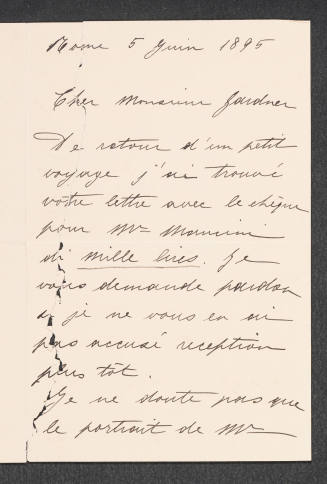 Rome 5 Juin 1895
Cher Monsieur Gardner
De retour d'un petit
voyage j'ai trouvé
votre lettre avec le chèque
pour Mr Mancini
di mille lires. Je
vous demande pardon
si je ne vous en ai
pas accusé reception
plus tôt.
Je ne doute pas que
le portrait de Mr